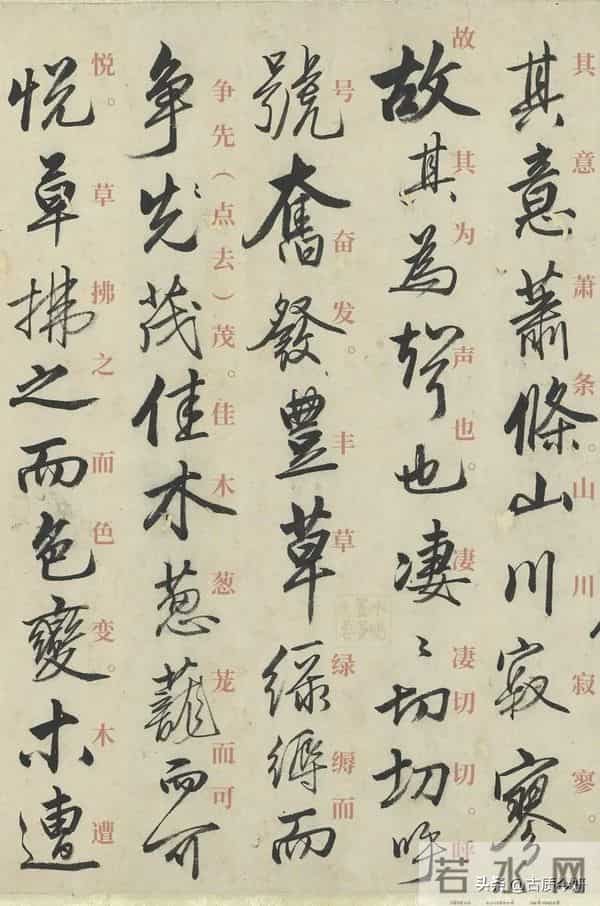 其意萧条。山川寂寥。
其意蕭條山川寂寥
故其为声也。凄凄切切。呼
故其為聲也凄〻切切呼
号奋发。丰草绿缛而
號奮發豐草緑縟而
争先（点去）茂。佳木葱茏而可
争先茂佳木葱蘢而可
悦。草拂之而色变。木遭
悦草拂之而色變木遭
若水网
头条 @古质今妍